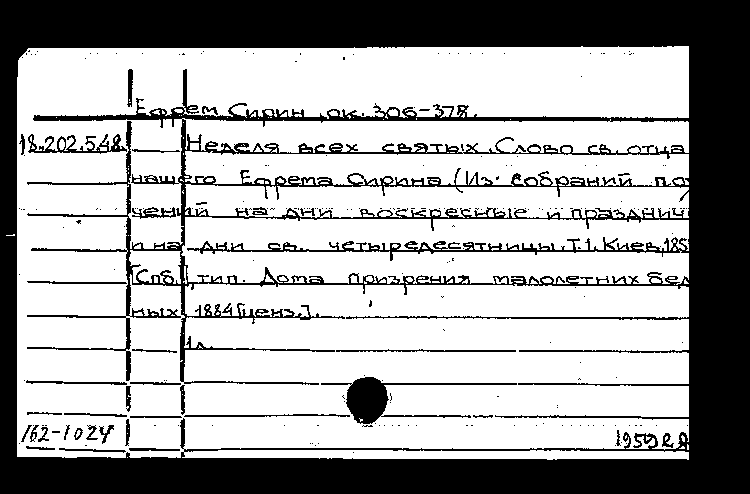 Ефрем Сирин, ок. 306-378.
18.202.548. Неделя всех святых. Слово св. отца
нашего Ефрема Сирина. (Из собраний поу
чений на дни воскресные и праздничн
и на дни св. четыредесятницы. Т.1. Киев, 185
[Спб.], тип. Дома призрения малолетних бед
ных, 1884 [ценз.].
1л.
162-1024